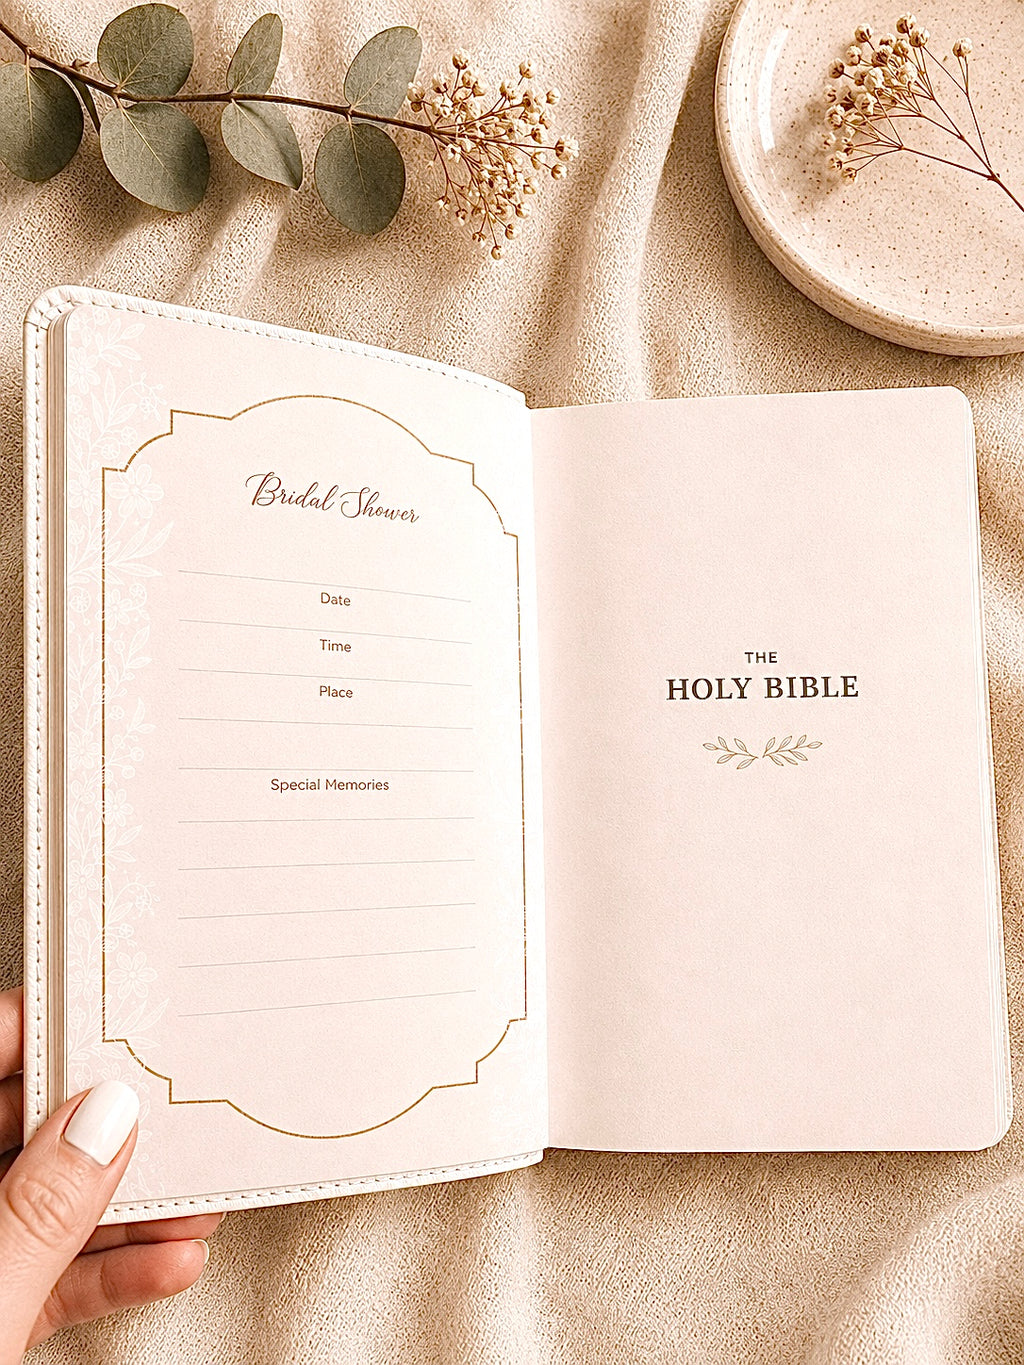 Bridal Shower
Date
Time
Place
Special Memories
THE
HOLY BIBLE